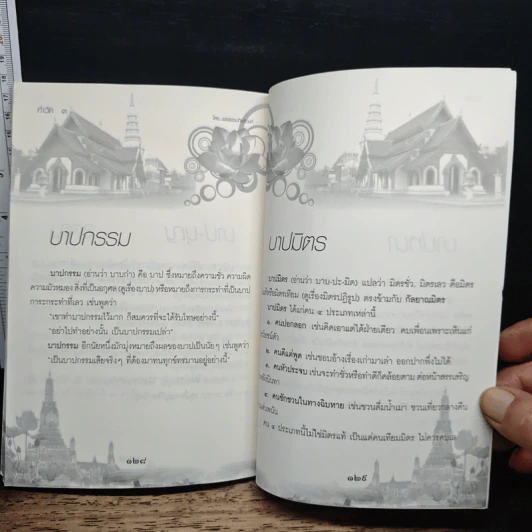 คำวัด ๓
บาปกรรม
บาปกรรม (อ่านว่า บาบกำ) คือ บาป ซึ่งหมายถึงความชั่ว ความผิด
ความมัวหมอง สิ่งที่เป็นอกุศล (ดูเรื่องบาป) หรือหมายถึงการกระทำที่เป็นบาป
การะกระทำที่เลว เช่นพูดว่า
"เขาทำบาปกรรมไว้มาก ก็สมควรที่จะได้รับโทษอย่างนี้"
"อย่าไปทำอย่างนั้น เป็นบาปกรรมเปล่าๆ"
บาปกรรม อีกนัยหนึ่งมักมุ่งหมายถึงผลของบาปเป็นนัยๆ เช่นพูดว่า
"เป็นบาปกรรมเสียจริงๆ ที่ต้องมาทนทุกข์ทรมานอยู่อย่างนี้"
๑๒๘
บาปมิตร
บาปมิตร (อ่านว่า บาบ-ปะ-มิด) แปลว่า มิตรชั่ว, มิตรเลว คือมิตร
มิตรเทียม (ดูเรื่องมิตรปฏิรูป) ตรงข้ามกับ กัลยาณมิตร
บาปมิตร ได้แก่คน ๔ ประเภทเหล่านี้
๑. คนปอกลอก เช่นคิดเอาแต่ได้ฝ่ายเดียว คบเพื่อนเพราะเห็นแก่
๒. คนดีแต่พูด เช่นชอบอ้างเรื่องเก่ามาเล่า ออกปากพึ่งไม่ได้
๓. คนหัวประจบ เช่นจะทำชั่วหรือทำดีก็คล้อยตาม ต่อหน้าสรรเสริญ
๔. คนชักชวนในทางฉิบหาย เช่นชวนดื่มน้ำเมา ชวนเที่ยวกลางคืน
คน ๔ ประเภทนี้ไม่ใช่มิตรแท้ เป็นแต่คนเทียมมิตร ไม่ควรคบ
๑๒๙